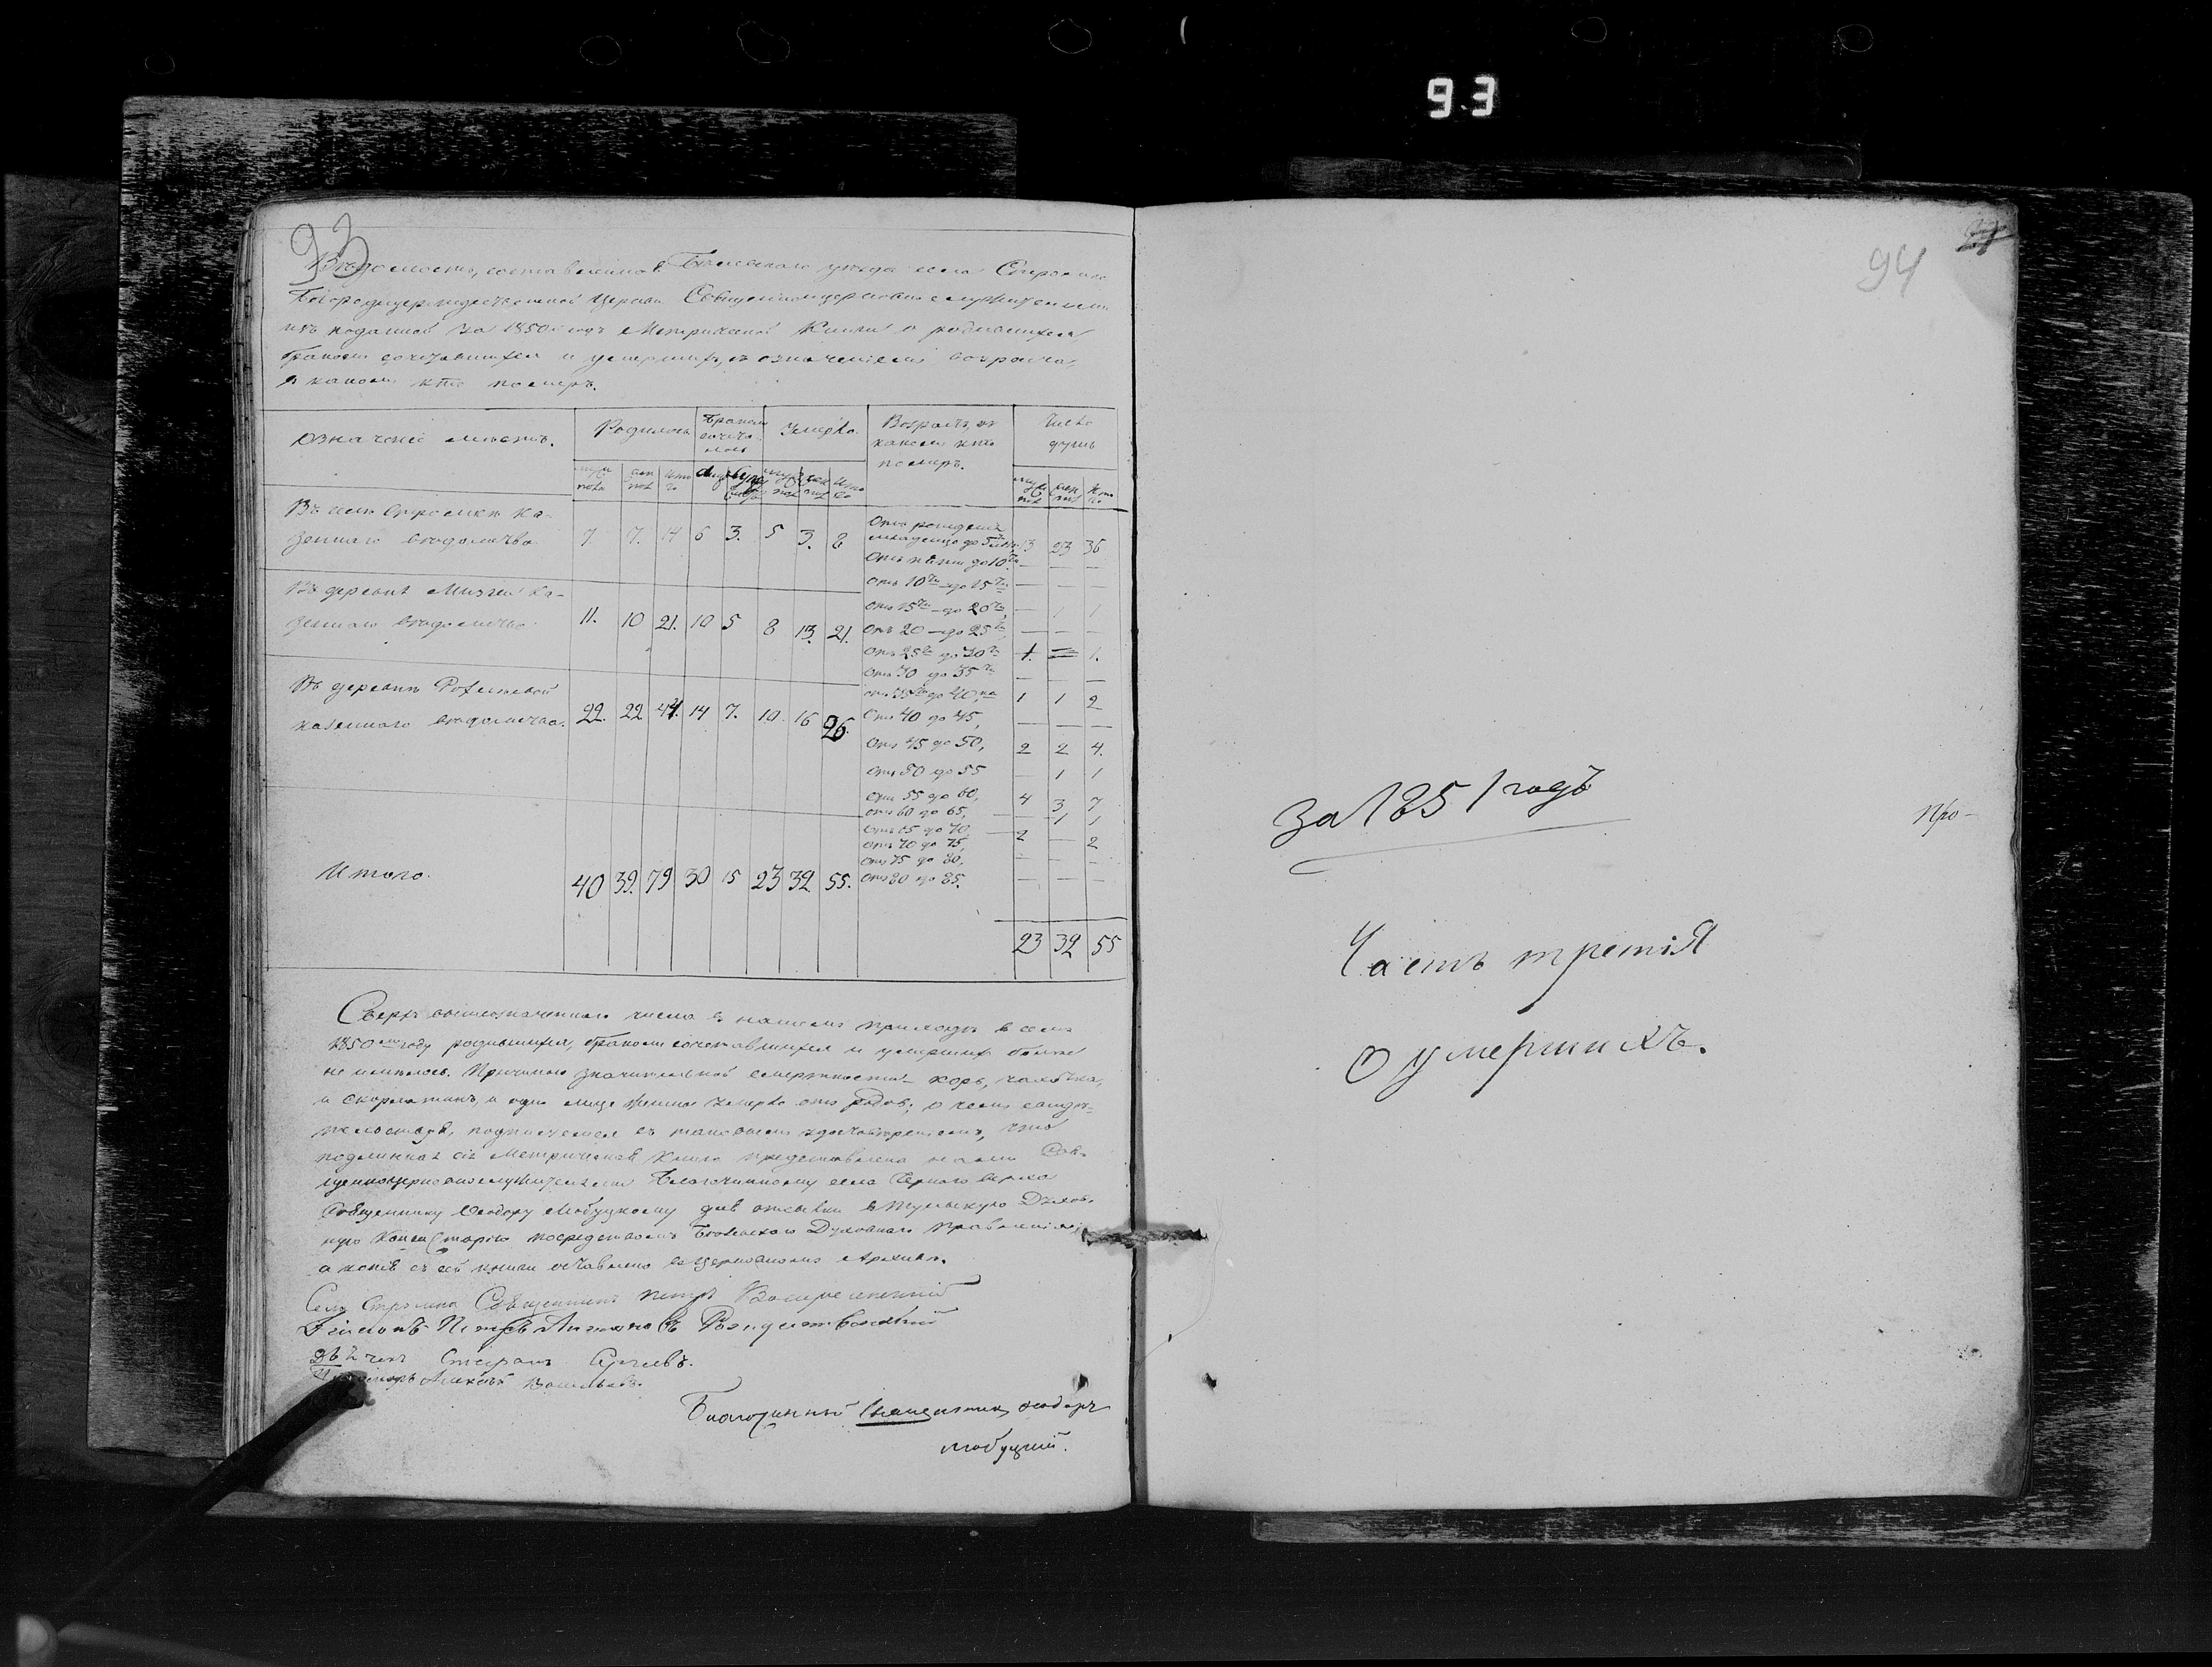 9.3
93
Вѣдомость, составленная Бѣлевскаго уѣзда села Стромина
Богородицерождественской Церкви Священноцерковнослужителями
изъ поданной за 1850й годъ Метрической Книги о родившихся
бракомъ сочетавшихся и умершихъ, съ означеніемъ возраста,
въ какомъ кто померъ.
Означеніе мѣстъ. Родилось Бракомъ сочеталось Умерло. Возрастъ, въ какомъ кто померъ. Число душъ
Въ селѣ Ка-
зеннаго вѣдомства 7 7. 14 6 3. 5 3. 8
Въ деревнѣ Ка-
зеннаго вѣдомства 11. 10 21. 10 5 8 13. 21.
Въ деревнѣ
казеннаго вѣдомства. 22. 22 44. 14 7. 10. 16 26.
Итого. 40 39. 79 30 15 23 32 55.
Отъ рожденія
младенца до 5 лѣтъ 13 23 36
Отъ пяти до 10 — — —
Отъ 10 — до 15 — — —
Отъ 15 — до 20 — 1 1
Отъ 20 — до 25 — — —
Отъ 25 до 30 1. — 1.
Отъ 30 до 35 — — —
Отъ 35 до 40 1 1 2
Отъ 40 до 45, — — —
Отъ 45 до 50, 2 2 4.
Отъ 50 до 55 — 1 1
Отъ 55 до 60, 4 3 7
Отъ 60 до 65, — 1 1
Отъ 65 до 70 2 — 2
Отъ 70 до 75,
Отъ 75 до 80, — — —
Отъ 80 до 85. — — —
23 32 55
Сверхъ вышеозначеннаго числа въ нашемъ приходѣ в семъ
1850мъ году родившихся, бракомъ сочетавшихся и умершихъ болѣе
не имѣлось. Причиною значительной смертности — корь,
и скарлатинъ, и одно лице женска умерло отъ родовъ; о чемъ свидѣ-
тельствуя, подписуемся съ таковымъ удостовѣреніемъ, что
подлинная сія Метрическая Книга представлена нами Свя-
щенноцерковнослужителями Благочинному села Чернаго верха
Священнику Ѳеодору Мобуцкому для отсылки в Тульскую Духов-
ную Консисторію посредствомъ Бѣлевскаго Духовнаго Правленія;
а копія съ сей книги оставлена въ церковномъ Архивѣ.
Села Стромина Священникъ Петръ Воскресенскій
Діаконъ Петръ Рождественскій
Дьячекъ Стефанъ Сергѣевъ.
Пономарь Алексѣй Васильевъ.
Благочинный Священникъ Ѳеодоръ
Мобуцкій.
94
за 1851 годъ
Про-
Часть третія
О умершихъ.